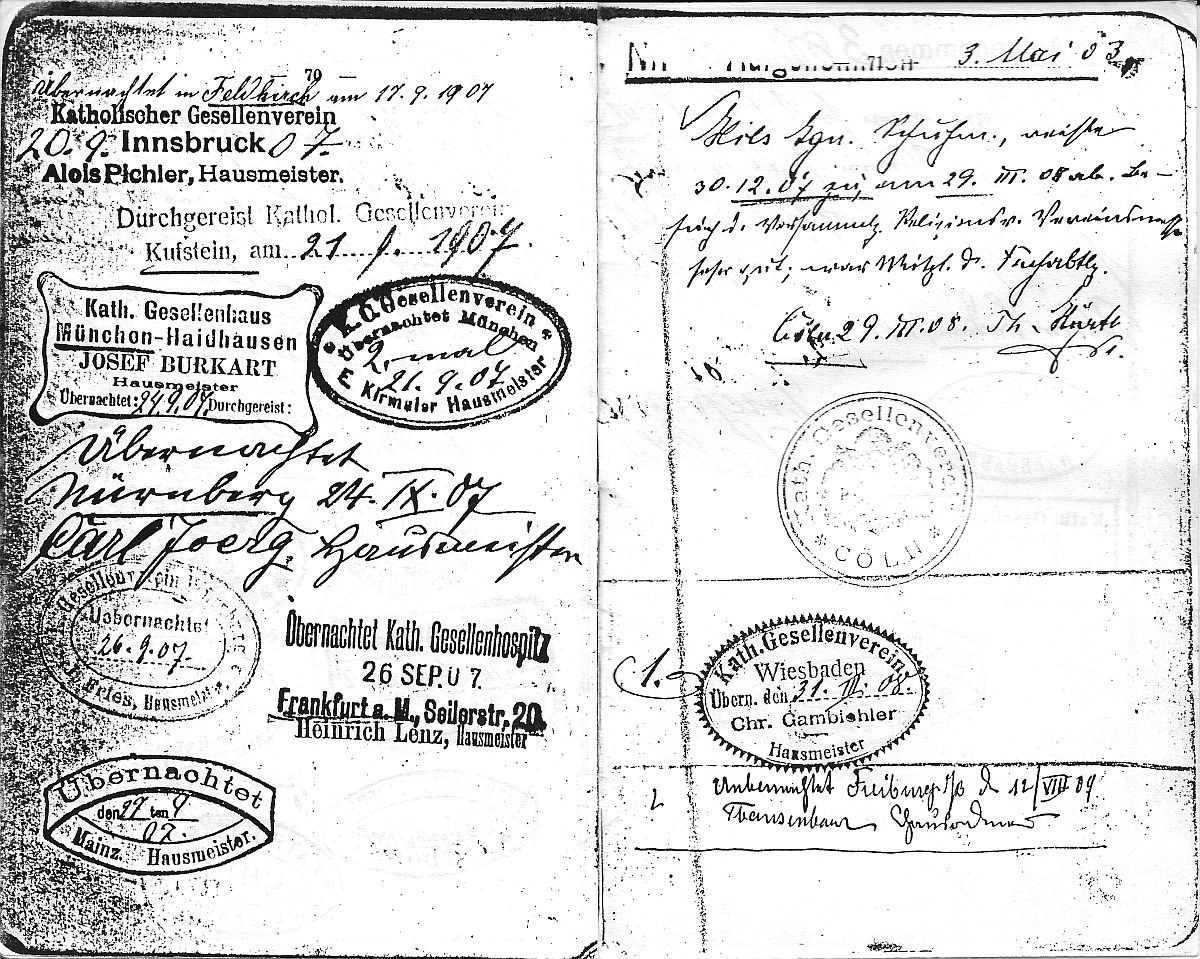 79
Übernachtet in Feldkirch am 17.9.1907
Katholischer Gesellenverein
20.9. Innsbruck 07.
Alois Pichler, Hausmeister.
Durchgereist Kathol. Gesellenverein
Kufstein, am 21. 9. 1907.
Kath. Gesellenhaus
München-Haidhausen
JOSEF BURKART
Hausmeister
Übernachtet: 24.9.07 Durchgereist:
K. G. Gesellenverein
Übernachtet München
2. mal
21.9.07.
E. Kirmaier Hausmeister
Übernachtet
Nürnberg 24. IX. 07
Carl Joerg. Hausmeister
Gesellenverein
Uebernachtet
26.9.07.
Hausmeister
Übernachtet Kath. Gesellenhospitz
26 SEP. 07.
Frankfurt a. M., Seilerstr. 20.
Heinrich Lenz, Hausmeister
Übernachtet
den 27 ten 9
07.
Mainz. Hausmeister.
3. Mai 03
Schuhm., reiste
30.12.07 zu, am 29. III. 08 ab. Be-
such d. Versammlg.
sehr gut; war Mitgl. d. Fachabtlg.
Cöln 29. III. 08. Th.
Kath. Gesellenverein
CÖLN
1.
Kath. Gesellenverein
Wiesbaden
Übern. den 31. III. 08.
Chr. Gambichler
Hausmeister
2
Übernachtet Freiburg i/B d 12/VIII 09